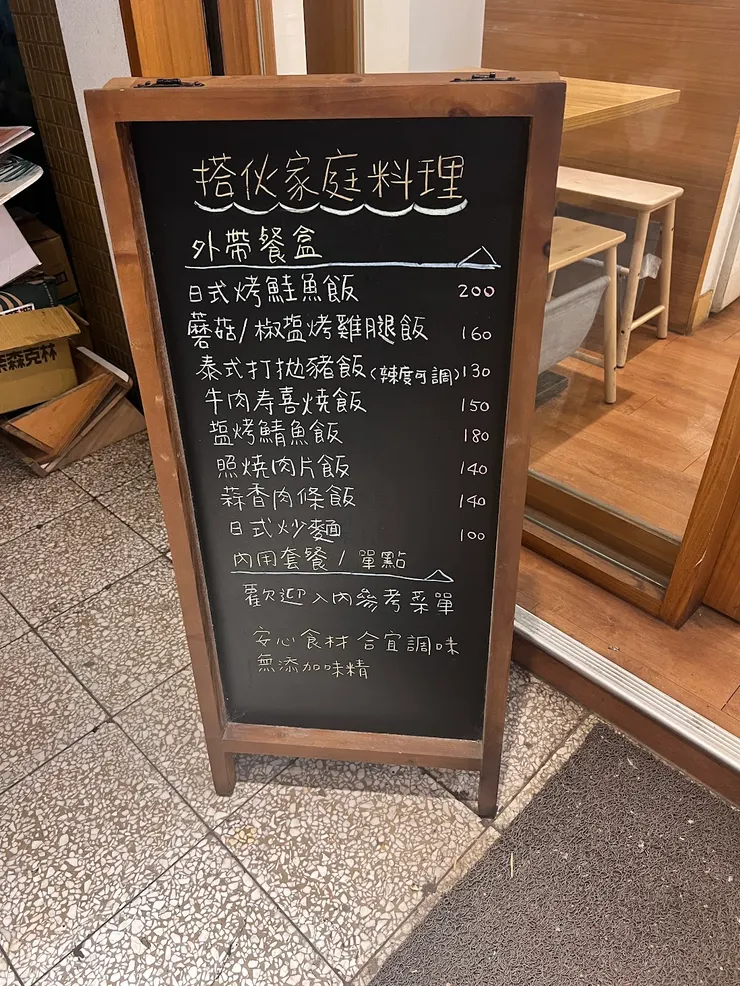 搭伙家庭料理
外帶餐盒
日式烤鮭魚飯 200
蘑菇/椒塩烤雞腿飯 160
泰式打拋豬飯(辣度可調) 130
牛肉寿喜燒飯 150
塩烤鯖魚飯 180
照燒肉片飯 140
蒜香肉條飯 140
日式炒麵 100
內用套餐/單點
歡迎入內參考菜單
安心食材 合宜調味
無添加味精
森克林